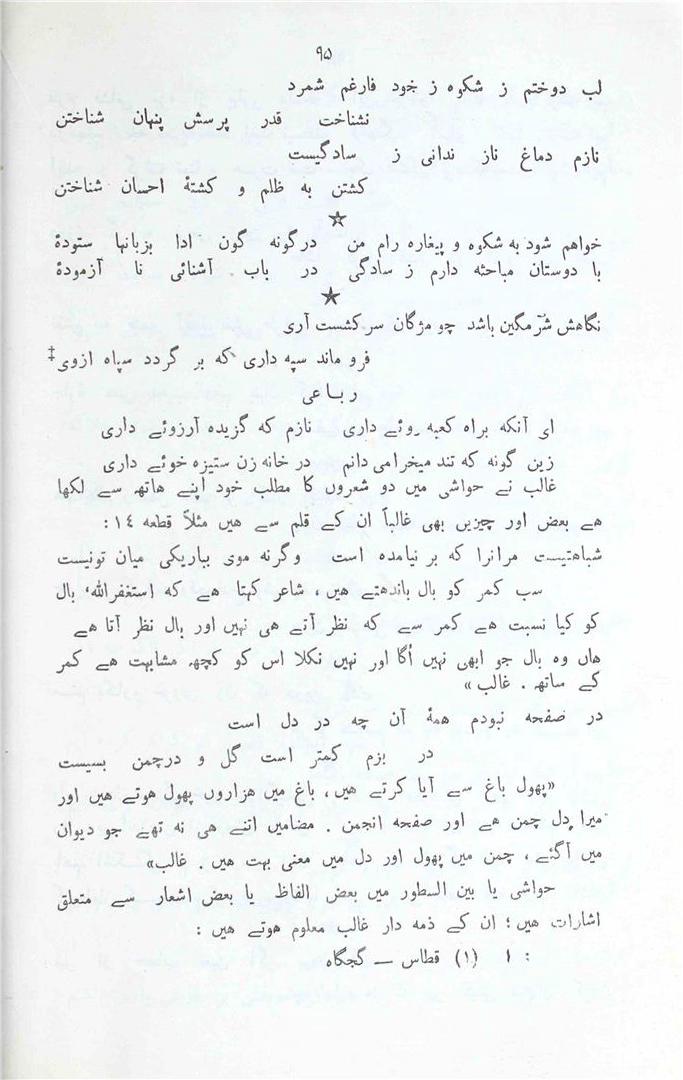 ۹۵
لب دوختم ز شکوه ز خود فارغم شمرد
نشناخت قدر پرسش پنهان شناختن
نازم دماغ ناز ندانی ز سادگیست
کشتن به ظلم و کشتۂ احسان شناختن
☆
خواهم شود به شکوه و پیغاره رام من درگونه گون ادا بزبانها ستودۂ
با دوستان مباحثه دارم ز سادگی در باب آشنائی نا آزمودۂ
★
نگاهش شرمگین باشد چو مژگان سرکشست آری
فرو ماند سپه داری که بر گردد سپاه ازوی‡
رباعی
ای آنکه براه کعبه روئے داری نازم که گزیده آرزوئے داری
زین گونه که تند میخرامی دانم در خانه زن ستیزه خوئے داری
غالب نے حواشی میں دو شعروں کا مطلب خود اپنے هاتھ سے لکھا
هے بعض اور چیزیں بھی غالباً ان کے قلم سے هیں مثلاً قطعه ١٤ :
شباهتیست مرانرا که بر نیامده است وگرنه موی بباریکی میان تونیست
سب کمر کو بال باندھتے هیں، شاعر کہتا هے که استغفرالله‘ بال
کو کیا نسبت هے کمر سے که نظر آتے هی نہیں اور بال نظر آتا هے
هاں وه بال جو ابھی نہیں اُگا اور نہیں نکلا اس کو کچھ مشابہت هے کمر
کے ساتھ . غالب»
در صفحه نبودم همۂ آن چه در دل است
در بزم کمتر است گل و درچمن بسیست
«پھول باغ سے آیا کرتے هیں، باغ میں هزاروں پھول هوتے هیں اور
میرا دل چمن هے اور صفحه انجمن . مضامیں اتنے هی نه تھے جو دیوان
میں آگئے، چمن میں پھول اور دل میں معنی بہت هیں . غالب»
حواشی یا بین السطور میں بعض الفاظ یا بعض اشعار سے متعلق
اشارات هیں؛ ان کے ذمه دار غالب معلوم هوتے هیں :
: ١ (١) قطاس — گجگاه